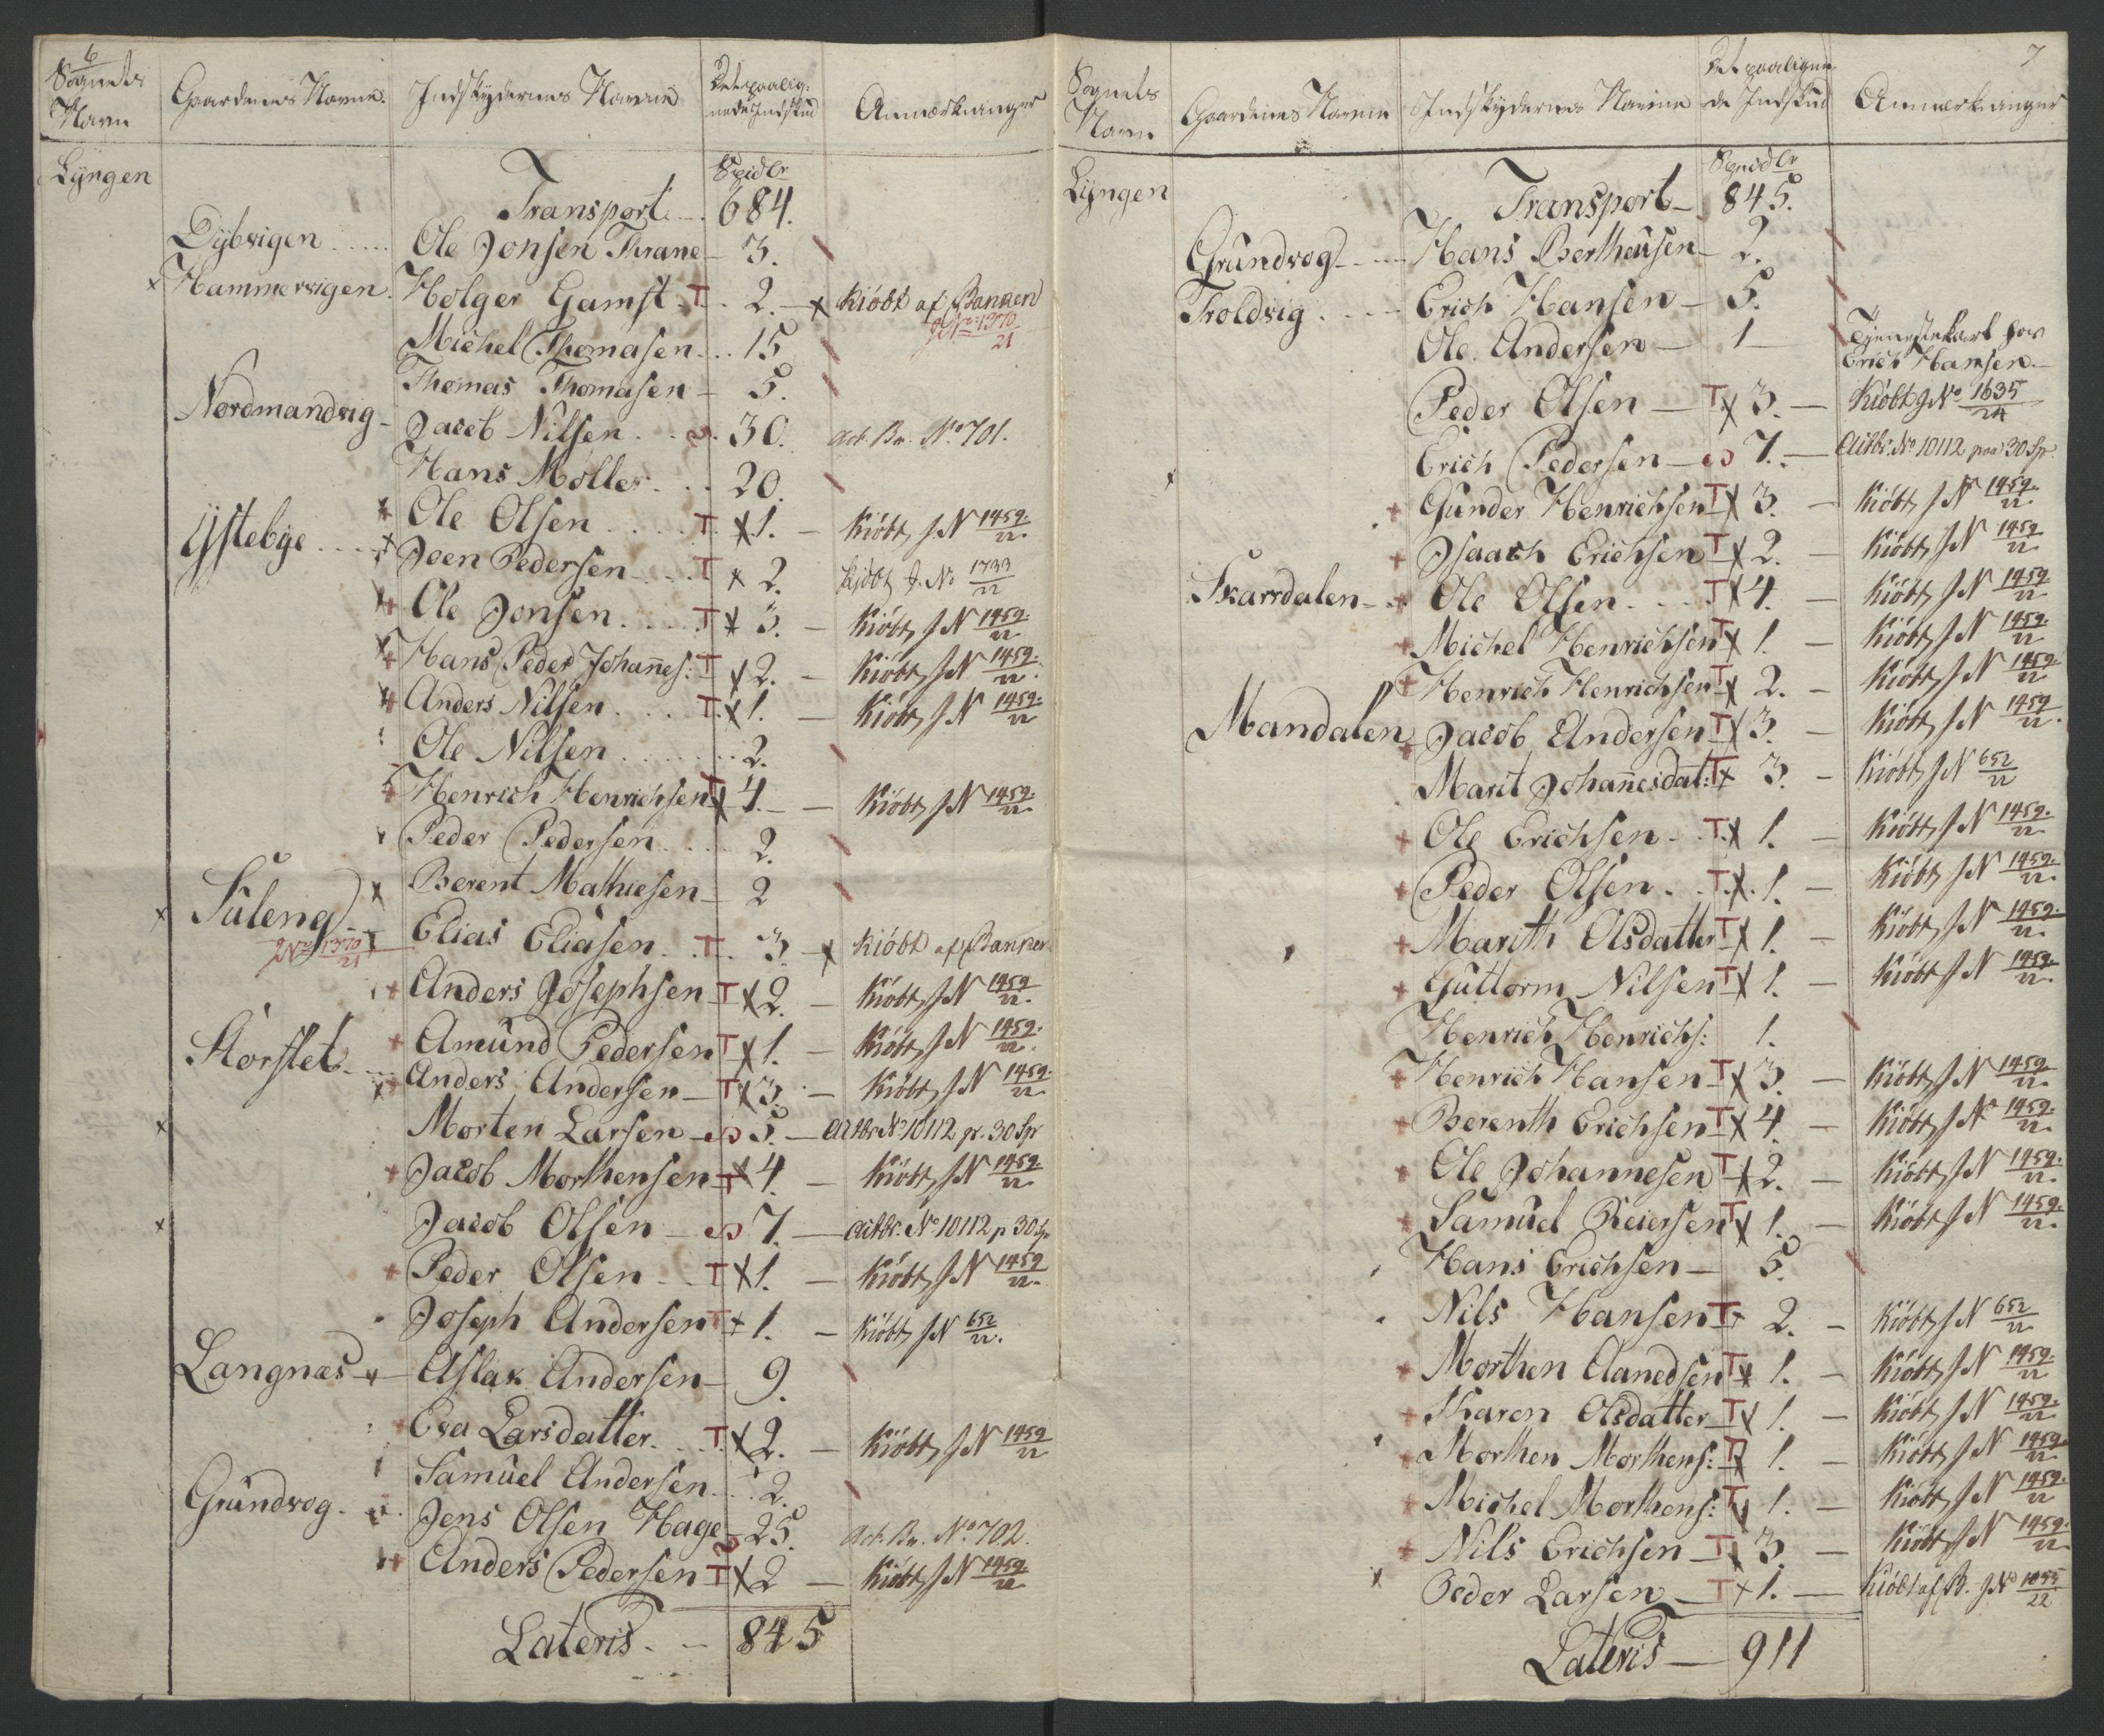 6
Sognets Navn | Gaardenes Navne. | Indskydernes Navne | Det paalignede Indskud | Anmærkninger
Lÿngen | Spidlr
Transport 684.
Dÿbvigen Ole Jonsen Thrane 3.
Hammervigen Holger Gamst T 2. Kiøbt af Banken JNo 1370/21
Michel Thomasen 15
Thomas Thomasen 5.
Nordmandvig Jacob Nilsen 30. Act. Br. No 701.
Hans Møller 20.
Ÿttebÿe Ole Olsen T x 1. Kiøbt J N 1459/22
Joen Pedersen T x 2. Kiøbt J. No 1733/22
Ole Jonsen T x 3. Kiøbt J N 1459/22
Hans Peder Johannes: T x 2. Kiøbt J N 1459/22
Anders Nilsen T x 1. Kiøbt J N 1459/22
Ole Nilsen 2.
Henrich Henrichsen T x 4. Kiøbt J N 1459/22
Peder Pedersen 2.
Berent Mathiesen 2
Suleng JNo 1370/21 Elias Eliasen T 3. x Kiøbt af Banken
Anders Josephsen T x 2. Kiøbt J N 1459/22
Storslet Amund Pedersen T x 1. Kiøbt J N 1459/22
Anders Andersen T x 3. Kiøbt J N 1459/22
Morten Larsen 5. Actbr No 10112 pr. 30 Sp
Jacob Morthensen T x 4. Kiøbt J N 1459/22
Jacob Olsen 7. Actbr. No 10112 p 30 Sp
Peder Olsen T x 1. Kiøbt J N 1459/22
Joseph Andersen T x 1. Kiøbt J N 652/22.
Langnæs Aslak Andersen 9.
Eva Larsdatter T x 2. Kiøbt J N 1459/22
Samuel Andersen 2.
Grundvog Jens Olsen Hage 25. Act. Br. No 702.
Anders Pedersen T x 2 Kiøbt J N 1459/22
Lateris 845
7
Sognets Navn | Gaardenes Navne | Indskydernes Navne | Det paalignede Indskud | Anmærkninger
Lÿngen | Spidlr
Transport 845.
Grundvog Hans Bertheusen 2.
Troldvig Erich Hansen 5.
Ole Andersen 1 Tjenestekarl hos Erich Hansen.
Peder Olsen T x 3. Kiøbt J No 1635/24
Erich Pedersen 7. Actbr. No 10112 paa 30 Sp
Gunder Henrichsen T x 3. Kiøbt J N 1459/22
Isaach Erichsen T x 2. Kiøbt J N 1459/22
Skarrdalen Ole Olsen T x 4. Kiøbt J N 1459/22
Michel Henrichsen T x 1. Kiøbt J N 1459/22
Henrich Henrichsen T x 2. Kiøbt J N 1459/22
Mandalen Jacob Andersen T x 3. Kiøbt J N 1459/22
Marit Johannesdat: T x 3. Kiøbt J N 652/22
Ole Erichsen T x 1. Kiøbt J N 1459/22
Peder Olsen T x 1. Kiøbt J N 1459/22
Marith Olsdatter T x 1. Kiøbt J N 1459/22
Guttorm Nilsen T x 1. Kiøbt J N 1459/22
Henrich Henrichs: 1.
Henrich Hansen T x 3. Kiøbt J N 1459/22
Berenth Erichsen T x 4. Kiøbt J N 1459/22
Ole Johannesen T x 2. Kiøbt J N 1459/22
Samuel Reiersen T x 1. Kiøbt J N 1459/22
Hans Erichsen 5.
Nils Hansen T 2. Kiøbt J N 652/22
Morthen Aanedsen T x 1. Kiøbt J N 1459/22
Karen Olsdatter T x 1. Kiøbt J N 1459/22
Morthen Morthens: T x 1. Kiøbt J N 1459/22
Michel Morthens: T x 1. Kiøbt J N 1459/22
Nils Erichsen T x 3. Kiøbt J N 1459/22
Peder Larsen T x 1. Kiøbt af B. J No 1055/22
Lateris 911